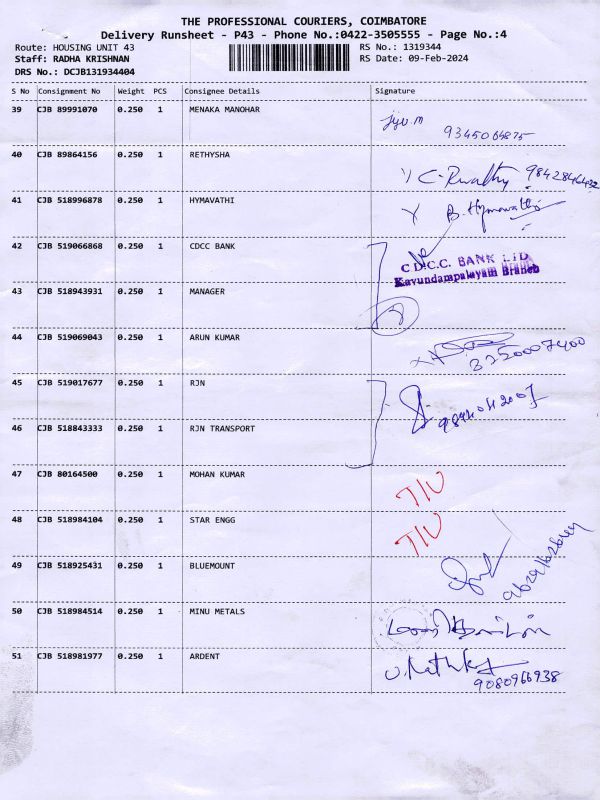 THE PROFESSIONAL COURIERS, COIMBATORE
Delivery Runsheet - P43 - Phone No.:0422-3505555 - Page No.:4
Route: HOUSING UNIT 43 RS No.: 1319344
Staff: RADHA KRISHNAN RS Date: 09-Feb-2024
DRS No.: DCJB131934404
S No Consignment No Weight PCS Consignee Details Signature
39 CJB 89991070 0.250 1 MENAKA MANOHAR
9345064875
40 CJB 89864156 0.250 1 RETHYSHA
9842846432
41 CJB 518996878 0.250 1 HYMAVATHI
B. Hymavathi
42 CJB 519066868 0.250 1 CDCC BANK
C D.C.C. BANK LTD
Kavundampalayam Branch
43 CJB 518943931 0.250 1 MANAGER
44 CJB 519069043 0.250 1 ARUN KUMAR
45 CJB 519017677 0.250 1 RJN
46 CJB 518843333 0.250 1 RJN TRANSPORT
47 CJB 80164500 0.250 1 MOHAN KUMAR
48 CJB 518984104 0.250 1 STAR ENGG
49 CJB 518925431 0.250 1 BLUEMOUNT
50 CJB 518984514 0.250 1 MINU METALS
51 CJB 518981977 0.250 1 ARDENT
9080966938